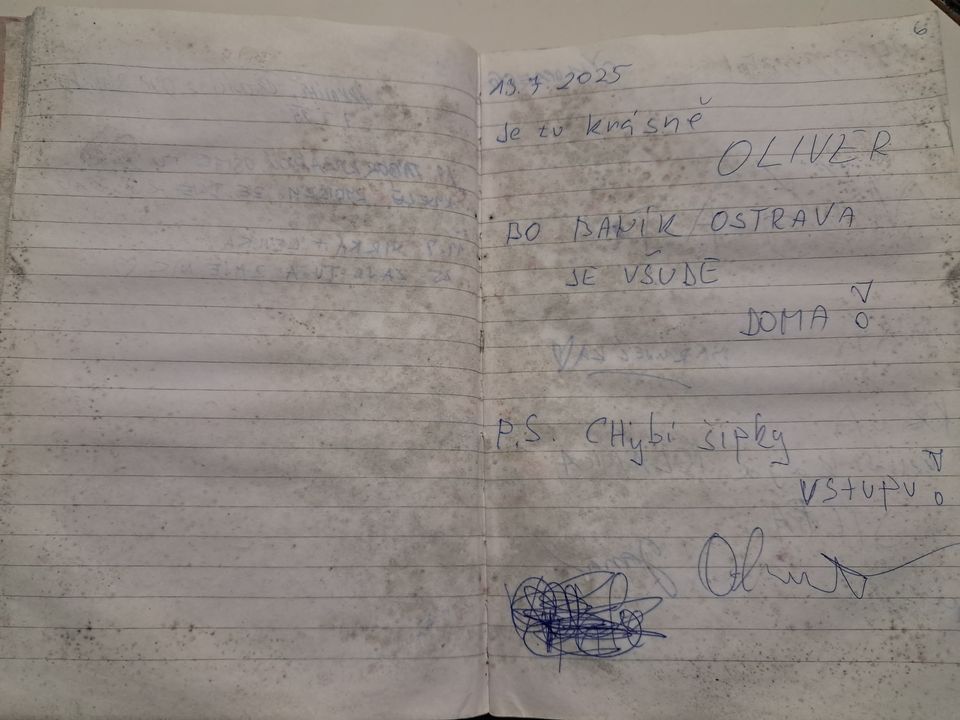 6
19.7.2025
Je tu krásně
OLIVER
BO BANÍK OSTRAVA
JE VŠUDE
DOMA!
P.S. CHybí šipky
vstupu!